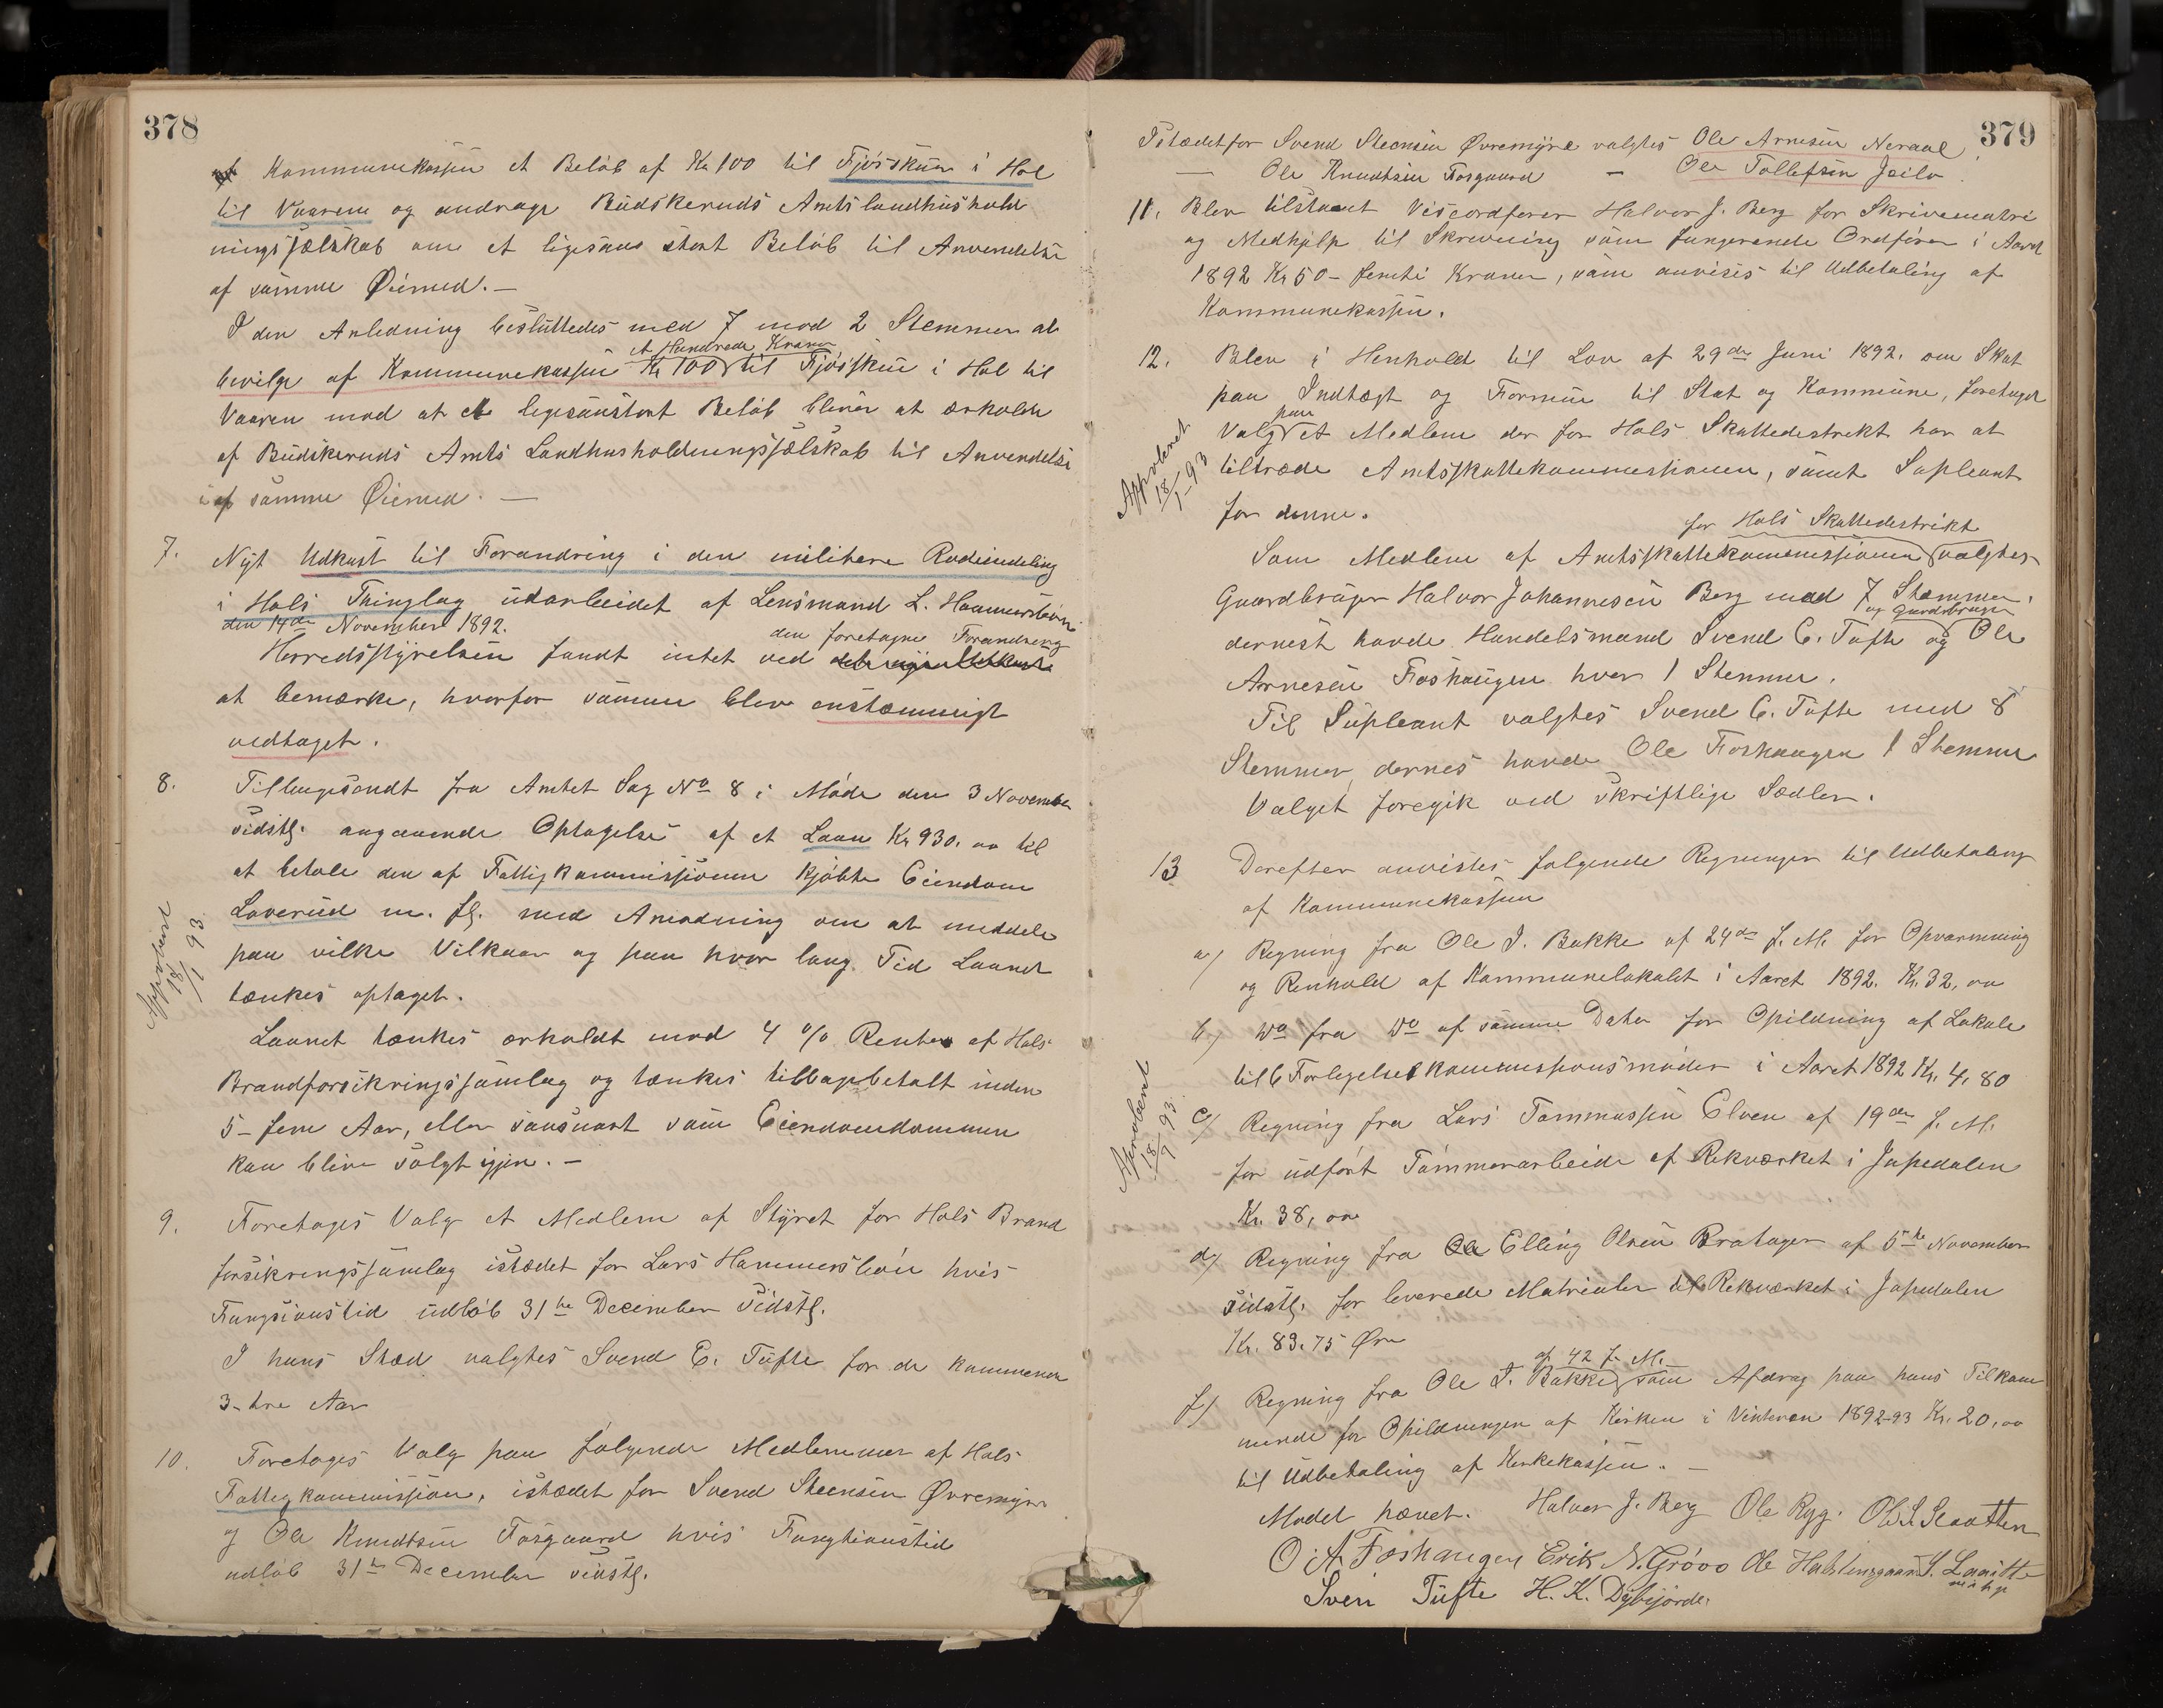 378
af Kommunekassen et Beløb af Kr 100 til Fjøsskue i Hol
til Vaaren og andrage Budskeruds Amtslandhushold
ningsselskab om et ligesaa stort Beløb til Anvendelse
af samme Øiemed. —
I den Anledning besluttedes med 7 mod 2 Stemmer at
et Hundrede Kroner
bevilge af Kommunekassen Kr 100 til Fjøsskue i Hol til
Vaaren mod at et ligesaastort Beløb bliver at erholde
af Budskeruds Amts Landhusholdningsselskab til Anvendelse
i samme Øiemed. —
7. Nyt Udkast til Forandring i den militere Rodeindeling
i Hols Thinglag udarbeidet af Lensmand L. Hammersbøen
den 14de November 1892.
den foretagne Forandring
Herredsstyrelsen fandt intet ved det nye Udkast
at bemærke, hvorfor samme blev enstemmigt
vedtaget.
8. Tilbagesendt fra Amtet Sag No 8 i Møde den 3 November
sidstl. angaaende Optagelse af et Laan Kr 930. oo til
at betale den af Fattigkommissionen kjøbte Eiendom
Loverud m. fl. med Anmodning om at meddele
paa vilke Vilkaar og paa hvor lang Tid Laanet
tænkes optaget.
Approberet 18/1 93.
Laanet tænkes erholdt mod 4 % Rente af Hols
Brandforsikringssamlag og tænkes tilbagebetalt inden
5 - fem Aar, eller saasnart som Eiendommen
kan blive solgt igjen. —
9. Foretages Valg et Medlem af Styret for Hols Brand
forsikringssamlag istedet for Lars Hammersbøen hvis
Fungsionstid udløb 31te December sidstl.
I hans Sted valgtes Svend E. Tufte for de kommende
3 - tre Aar
10. Foretages Valg paa følgende Medlemmer af Hols
Fattigkommission, istedet for Svend Steensen Øvremyre
og Ole Knudtsen Fosgaard hvis Fungtionstid
udløb 31te December sidstl.
379
Istædetfor Svend Steensen Øvremyre valgtes Ole Arnesen Neraal
— Ole Knudtsen Fosgaard — Ole Tollefsen Jeilo.
11. Blev tilstaaet Viseordfører Halvor J. Berg for Skrivematri
og Medhjelp til Skrivning som fungerende Ordfører i Aaret
1892 Kr 50 - femti Kroner, som anvises til Udbetaling af
Kommunekassen.
12. Blev i Henhold til Lov af 29de Juni 1892. om Skat
paa Indtægt og Formue til Stat og Kommune, foretaget
paa
Valg et Medlem der for Hols Skattedestrekt har at
tiltræde Amtsskattekommessionen, samt Supleant
for denne.
Approberet 18/1-93
for Hols Skattedestrikt
Som Medlem af Amtsskattekommissionen valgtes
Gaardbruger Halvor Johannesen Berg med 7 Stemmer.
og Gardsbruger
dernest havde Handelsmand Svend E. Tufte og Ole
Arnesen Foshaugen hver 1 Stemme.
Til Supleant valgtes Svend E. Tufte med 8
Stemmer, dernes havde Ole Foshaugen 1 Stemme
Valget foregik ved skriftlige Sedler.
13 Derefter anvistes følgende Regninger til Udbetaling
af Kommunekassen
a) Regning fra Ole I. Bakke af 24de f. M. for Opvarmning
og Renhold af Kommunelokalet i Aaret 1892. Kr. 32, oo
b) Do fra Do af samme Dato for Opildning af Lokale
til 6 Forligelseskommissionsmøder i Aaret 1892 Kr. 4, 80
c) Regning fra Lars Tommassen Elven af 19de f. M.
for udført Tømmerarbeide af Rekværket i Jupedalen
Kr. 38, oo
Aproberet 18/ 93.
d) Regning fra Ole Elling Olsen Bratager af 5te November
sidstl. for leverede Matrialer til Rekværket i Jupedalen
Kr. 83. 75 Øre
af 42 f. M.
f) Regning fra Ole I. Bakke som Afdrag paa hans Tilkom
mende for Opildningen af Kirken i Vinteren 1892-93 Kr. 20, oo
til Udbetaling af Kirkekassen. —
Mødet hævet. Halvor J. Berg Ole Ryg. Ole S. Slaatten
O. A. Foshaugen Erik N. Grøvo Ole Halstensgaard
Sven Tufte H. K. Dybsjorde.